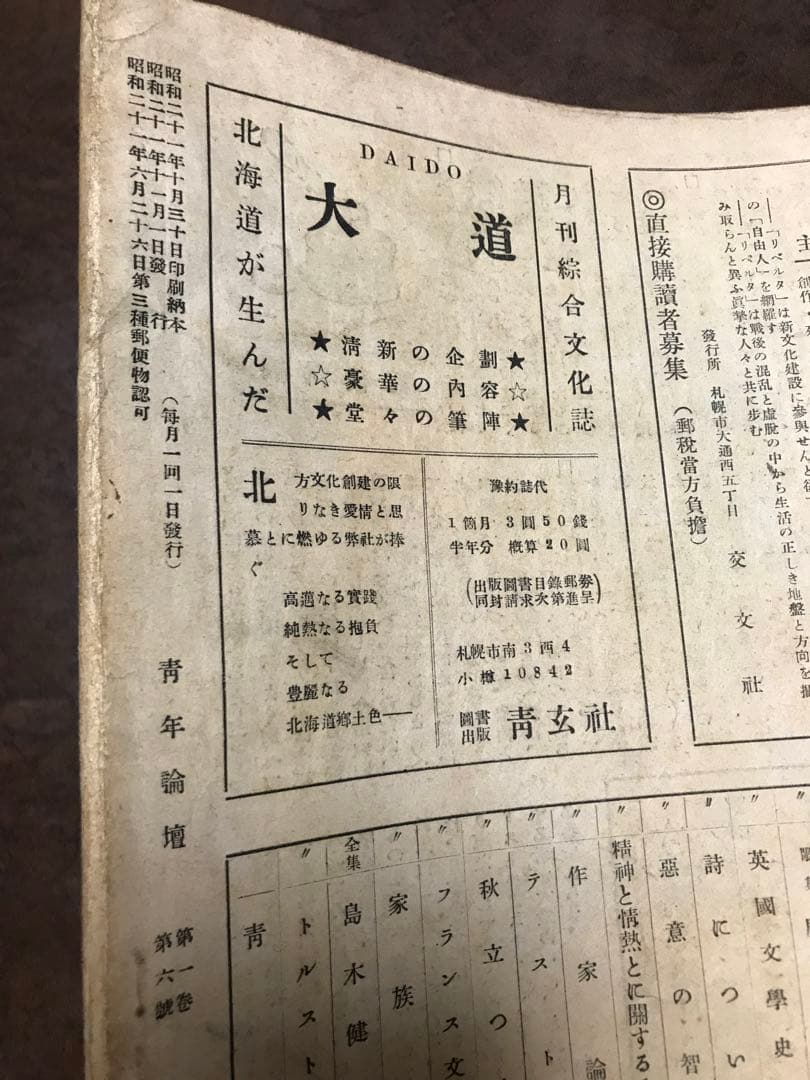 主
創作・
―「リベルタ」は新文化建設に參與せんと欲
の「自由人」を網羅す
―「リベルタ」は戰後の混乱と虛脫の中から生活の正しき地盤と方向を摑
み取らんと異ふ眞摯な人々と共に歩む
發行所 札幌市大通西五丁目 交文社
◎直接購讀者募集(郵稅當方負擔)
月刊綜合文化誌
DAIDO
大道
★清新の企劃
☆豪華の內容
★堂々の筆陣
北海道が生んだ
豫約誌代
1箇月 3圓50錢
半年分 槪算20圓
(出版圖書目錄郵券
同封請求次第進呈)
札幌市南3西4
小樽10842
圖書出版 靑玄社
北方文化創建の限
りなき愛情と思
慕とに燃ゆる弊社が捧
ぐ
高邁なる實踐
純熱なる抱負
そして
豊麗なる
北海道鄕土色――
英國文學史
〃詩につい
〃惡意の智
〃精神と情熱とに關する
〃作家論
〃テスト
〃秋立つ
〃フランス文
〃家族
全集 島木健
〃トルスト
靑
昭和二十一年十月三十日印刷納本
昭和二十一年十一月一日發行
昭和二十一年六月二十六日第三種郵便物認可
(每月一回一日發行)
靑年論壇
第一卷
第六號